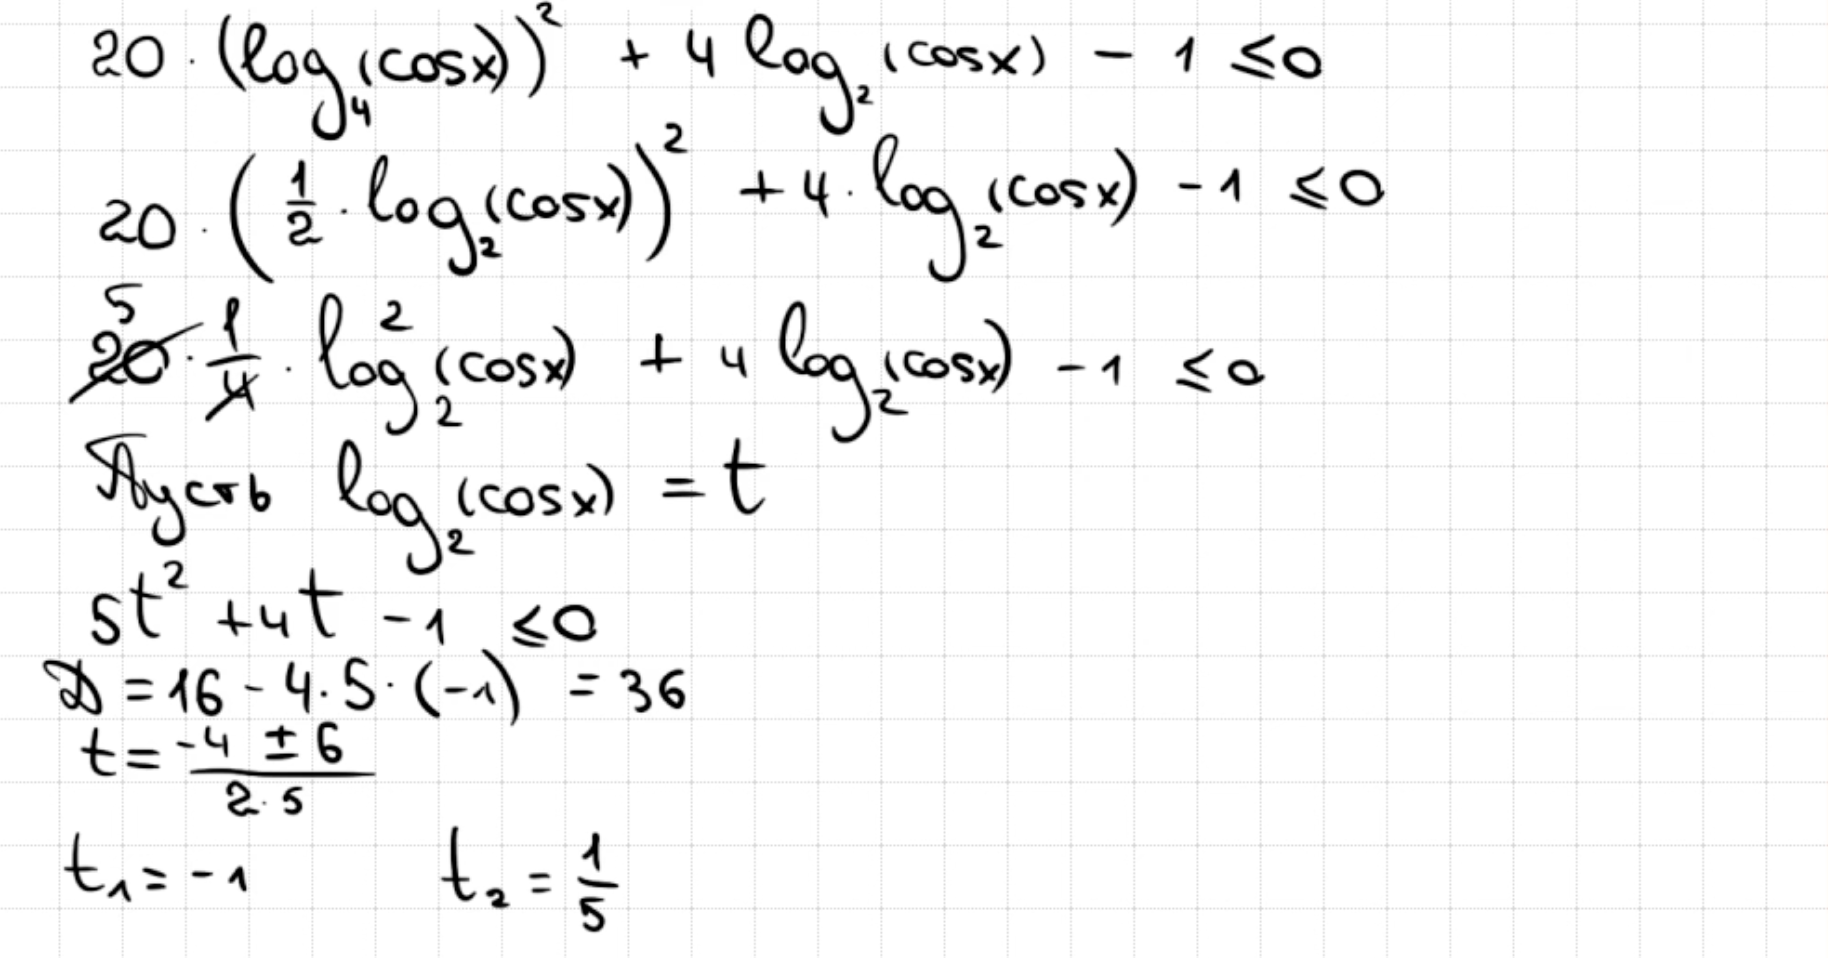 20 · (log₄(cosx))² + 4 log₂(cosx) - 1 ≤ 0
20 · (1/2 · log₂(cosx))² + 4 · log₂(cosx) - 1 ≤ 0
5
20 · 1/4 · log₂²(cosx) + 4 log₂(cosx) - 1 ≤ 0
Пусть log₂(cosx) = t
5t² + 4t - 1 ≤ 0
D = 16 - 4 · 5 · (-1) = 36
t = (-4 ± 6)/(2 · 5)
t₁ = -1 t₂ = 1/5